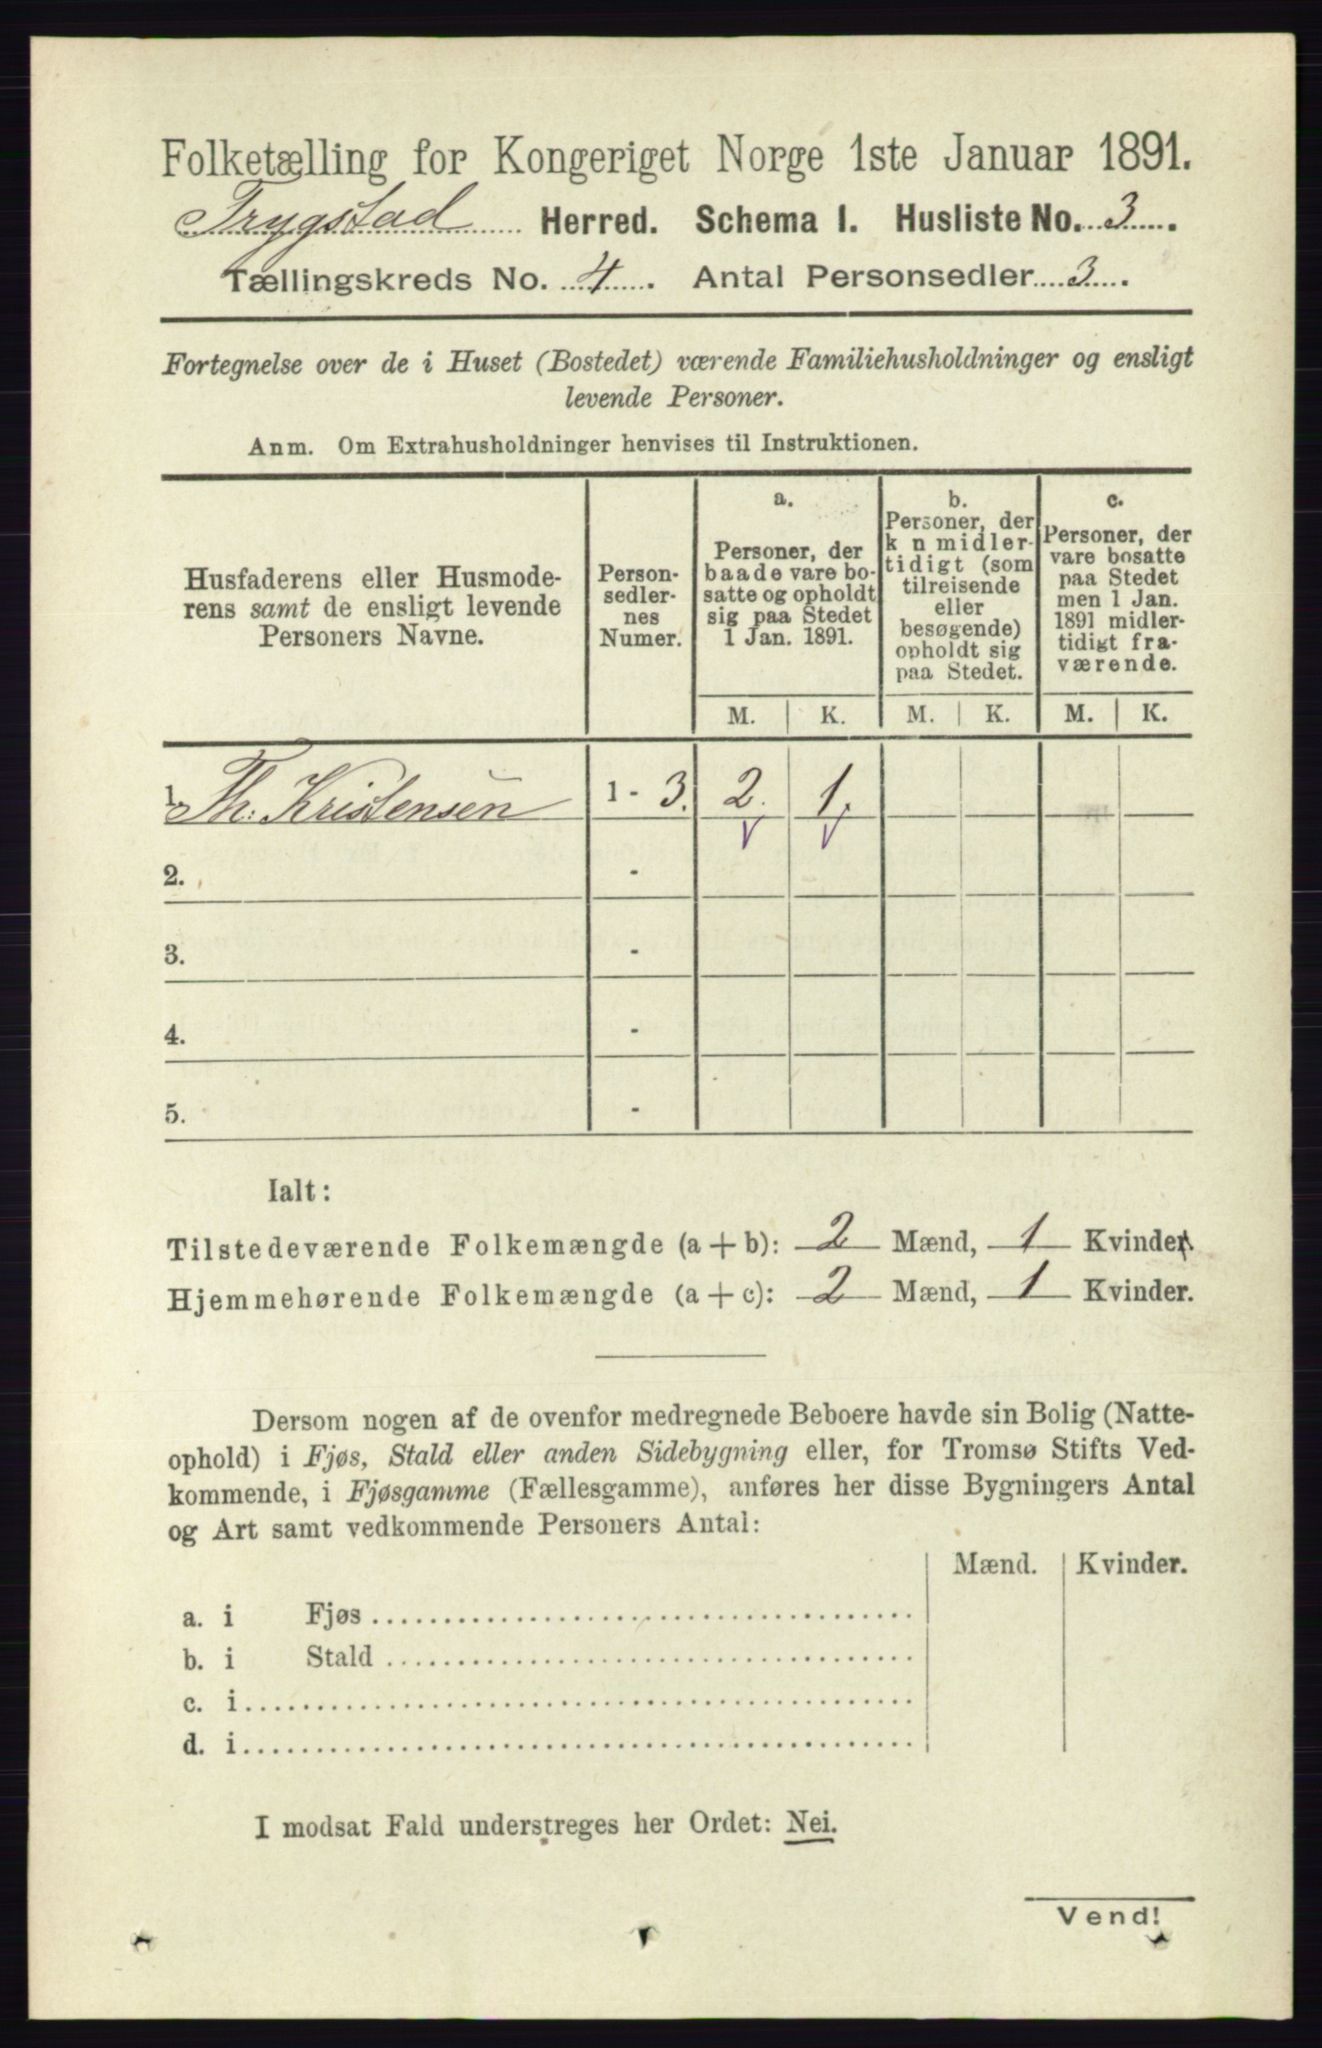 Folketælling for Kongeriget Norge 1ste Januar 1891.
Trygstad Herred. Schema I. Husliste No. 3.
Tællingskreds No. 4. Antal Personsedler 3.
Fortegnelse over de i Huset (Bostedet) værende Familiehusholdninger og ensligt
levende Personer.
Anm. Om Extrahusholdninger henvises til Instruktionen.
Husfaderens eller Husmode-
rens samt de ensligt levende
Personers Navne.
Person-
sedler-
nes
Numer.
a.
Personer, der
baade vare bo-
satte og opholdt
sig paa Stedet
1 Jan. 1891.
b.
Personer, der
k n midler-
tidigt (som
tilreisende
eller
besøgende)
opholdt sig
paa Stedet.
c.
Personer, der
vare bosatte
paa Stedet
men 1 Jan.
1891 midler-
tidigt fra-
værende.
M. K. M. K. M. K.
1. Th. Kristensen 1 - 3. 2. 1.
2. -
3. -
4. -
5. -
Ialt:
Tilstedeværende Folkemængde (a + b): 2 Mænd, 1 Kvinder.
Hjemmehørende Folkemængde (a + c): 2 Mænd, 1 Kvinder.
Dersom nogen af de ovenfor medregnede Beboere havde sin Bolig (Natte-
ophold) i Fjøs, Stald eller anden Sidebygning eller, for Tromsø Stifts Ved-
kommende, i Fjøsgamme (Fællesgamme), anføres her disse Bygningers Antal
og Art samt vedkommende Personers Antal:
Mænd. Kvinder.
a. i Fjøs
b. i Stald
c. i
d. i
I modsat Fald understreges her Ordet: Nei.
Vend!